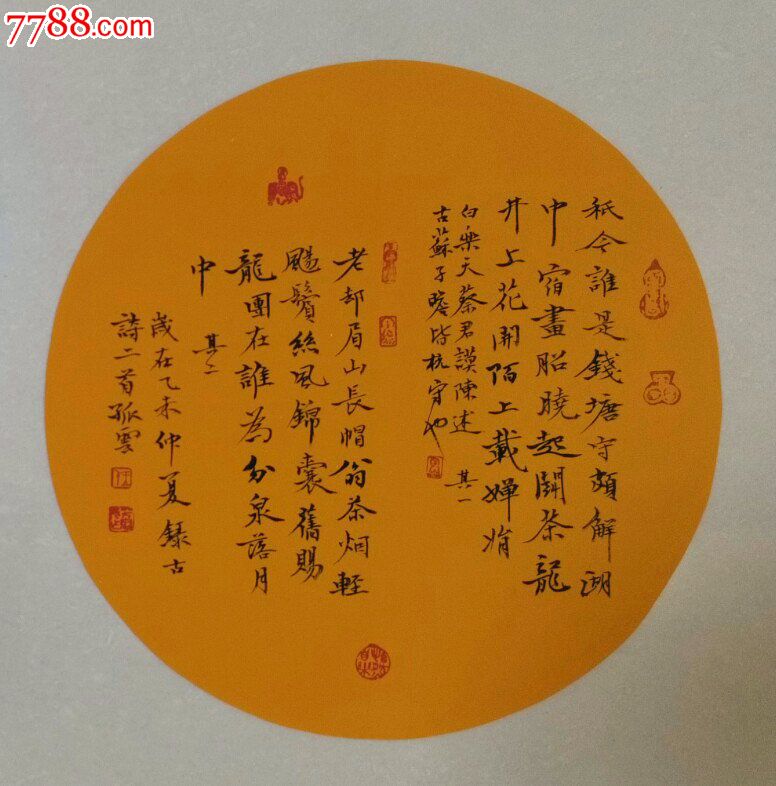 7788.com
秖今誰是錢塘守頗解湖
中宿畫船曉起鬬茶龍
井上花開陌上載嬋娟
白樂天蔡君謨陳述
古蘇子瞻皆杭守也 其一
老却眉山長帽翁茶烟輕
颺鬢絲風錦囊舊賜
龍團在誰為分泉落月
中 其二
歲在乙未仲夏錄古
詩二首孤雲